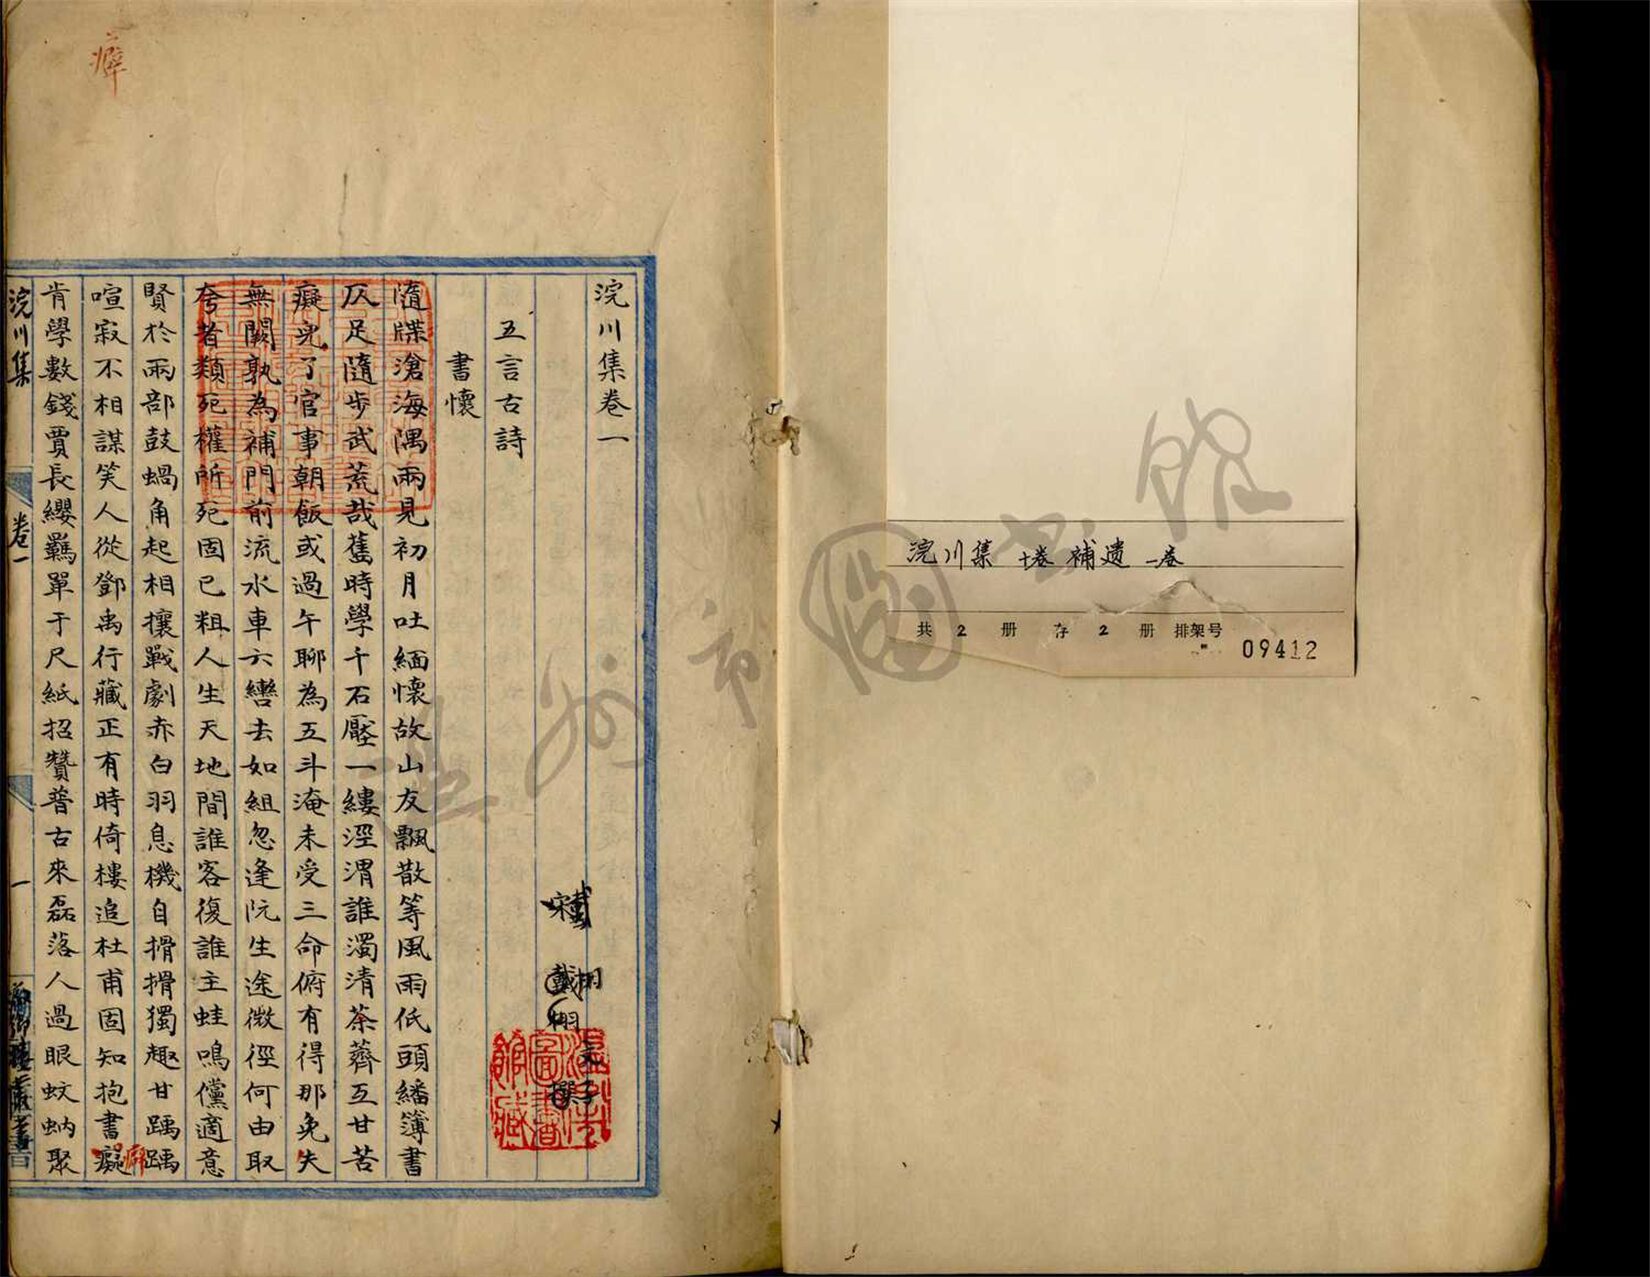 浣川集 十卷 補遺 一卷
共 2 册 存 2 册 排架号
09412
浣川集卷一
宋 戴栩 撰
五言古詩
書懷
隨牒滄海隅兩見初月吐緬懷故山友飄散等風雨低頭繙簿書
仄足隨步武荒哉舊時學千石壓一縷涇渭誰濁清荼薺互甘苦
癡兒了官事朝飯或過午聊為五斗淹未受三命俯有得那免失
無闕孰為補門前流水車六轡去如組忽逢阮生途微徑何由取
夸者類死權所死固已粗人生天地間誰客復誰主蛙鳴儻適意
賢於兩部鼓蝸角起相攘戰劇赤白羽息機自搰搰獨趣甘踽踽
喧寂不相謀笑人從鄧禹行藏正有時倚樓追杜甫固知抱書癡
癖
肯學數錢賈長纓羈單于尺紙招贊普古來磊落人過眼蚊蚋聚
浣川集
卷一
一
癖
溫州市圖書館藏
溫州市圖書館